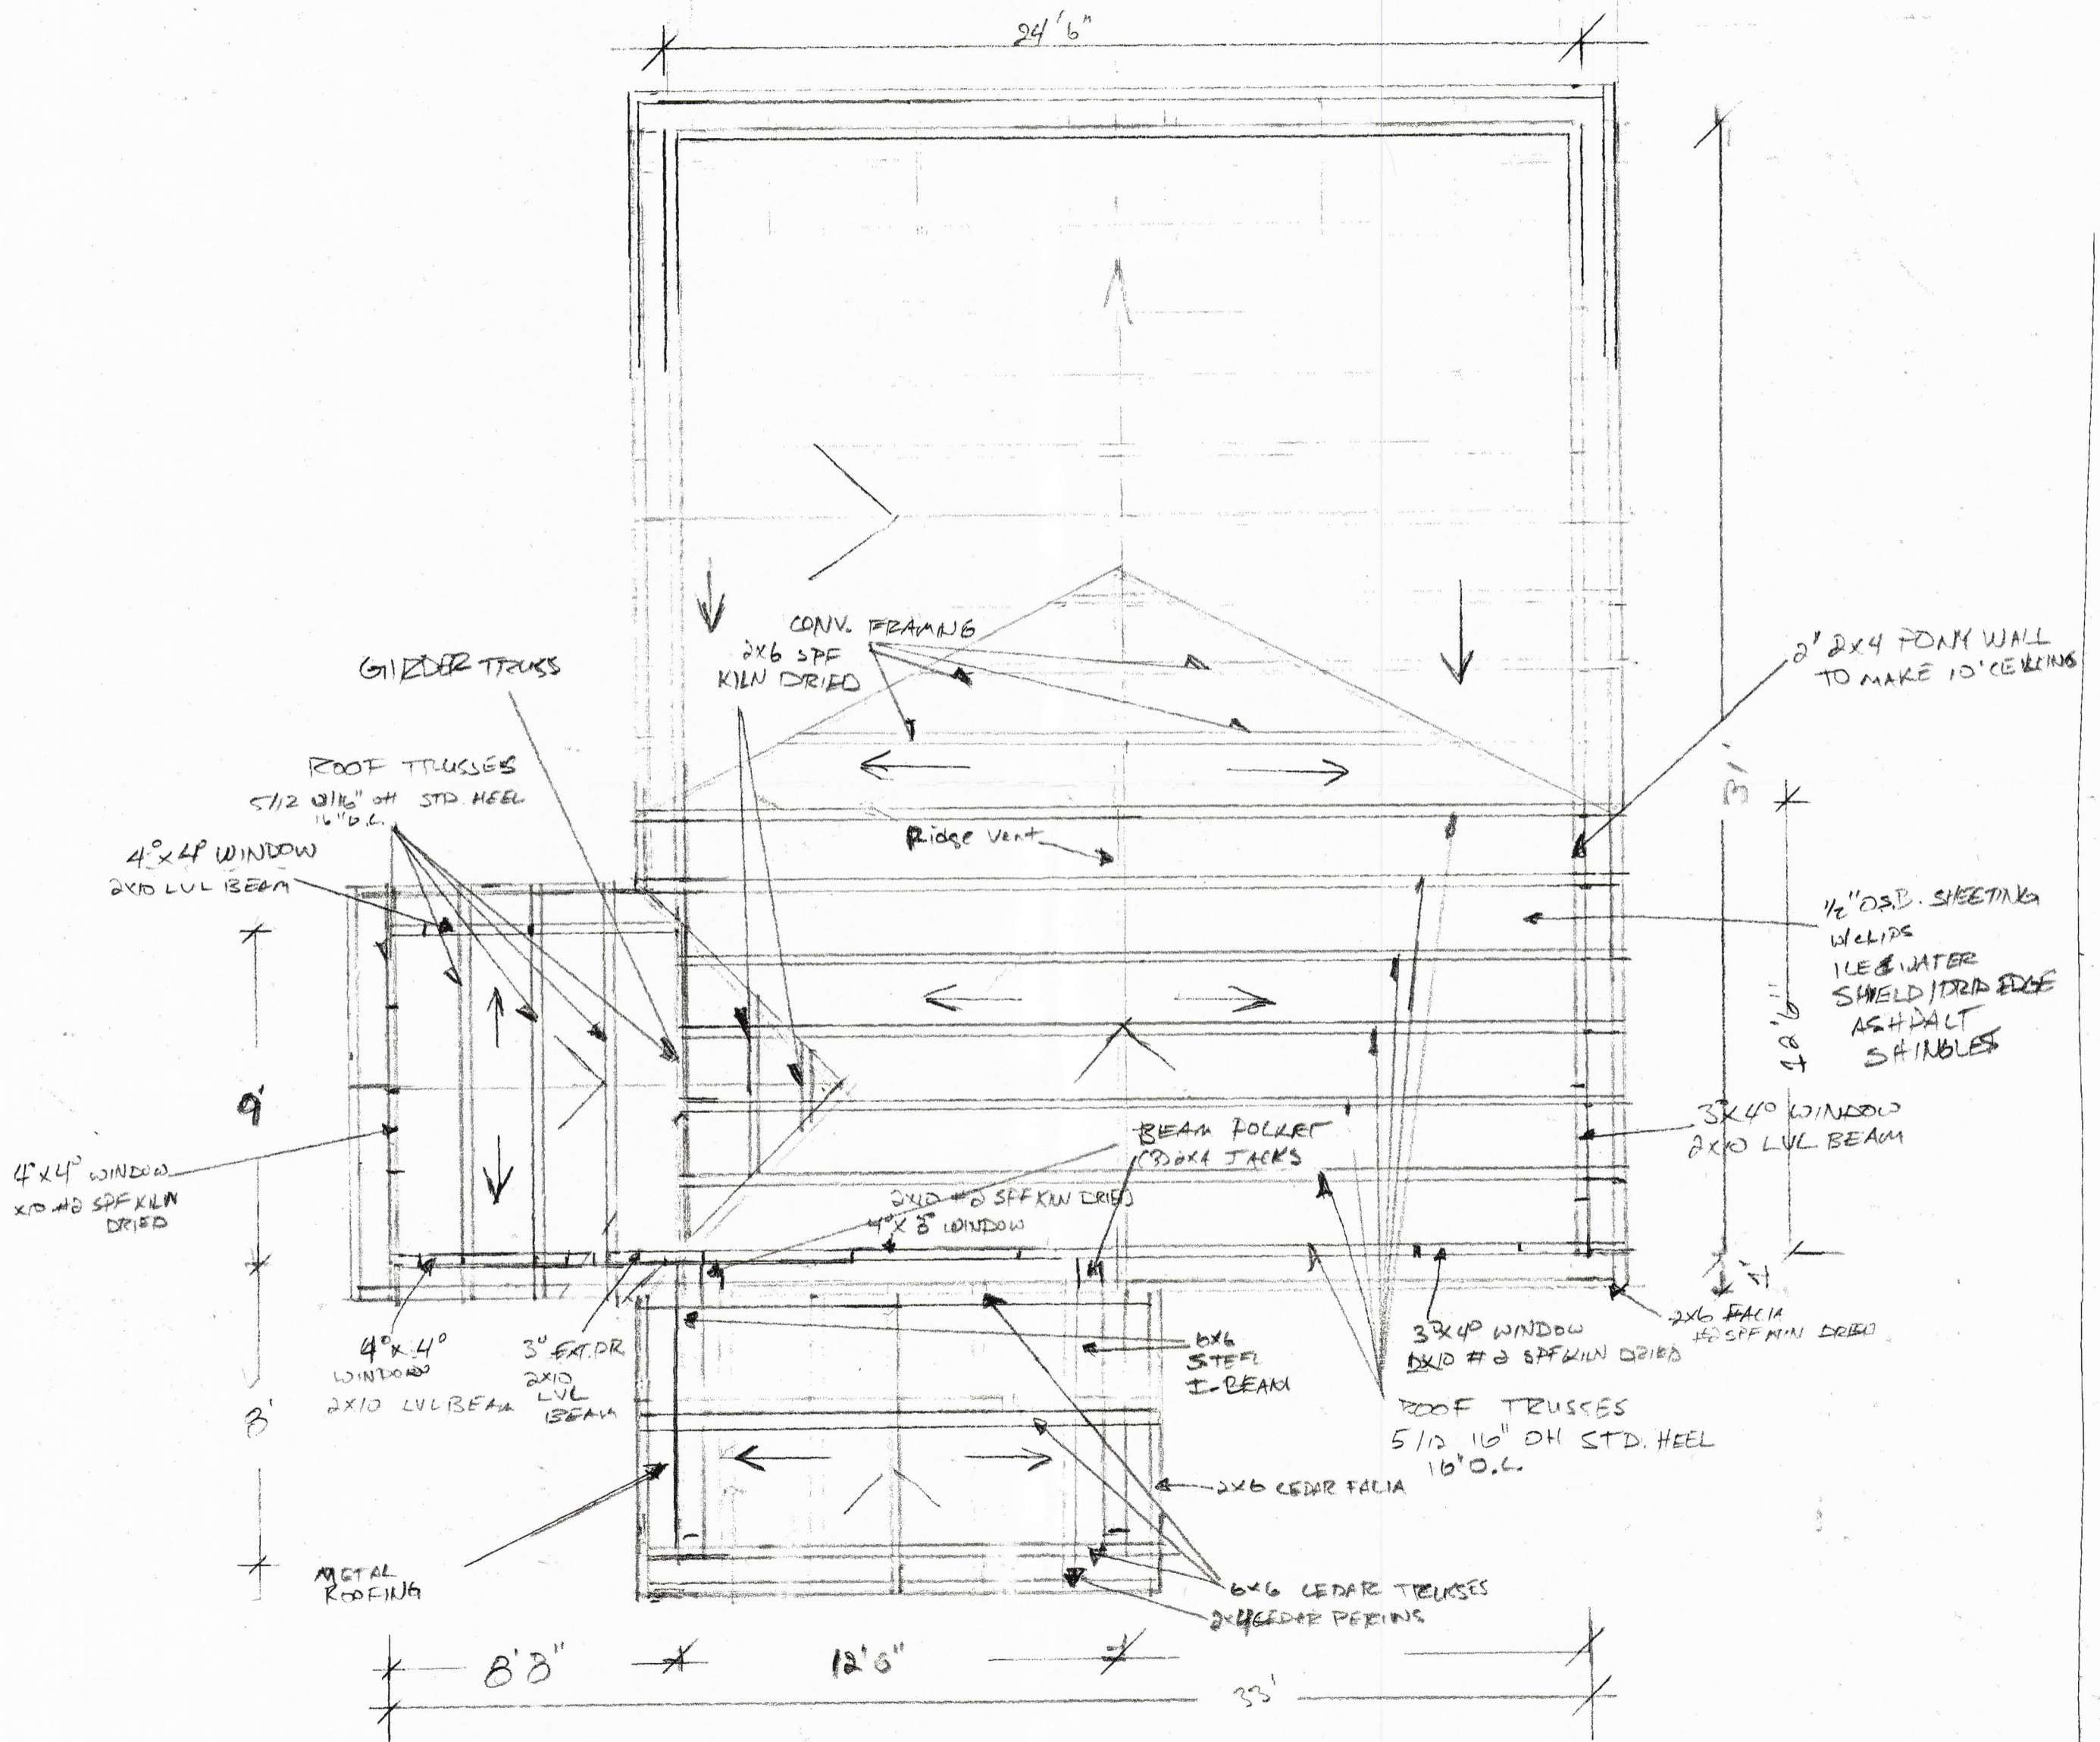 24'6"
CONV. FRAMNG
2X6 SPF
KILN DRIED
GIRDER TRUSS
2' 2X4 PONY WALL
TO MAKE 10' CEILING
ROOF TRUSSES
5/12 16" OH STD. HEEL
16" O.C.
4⁰X4⁰ WINDOW
2X10 LVL BEAM
Ridge Vent
31'
1/2" O.S.B. SHEETING
W/CLIPS
ICE & WATER
SHIELD/DRIP EDGE
ASHPALT
SHINGLES
12'6"
9'
3⁰X4⁰ WINDOW
2X10 LVL BEAM
BEAM POCKET
(3) 2X4 JACKS
4⁰X4⁰ WINDOW
X10 #2 SPF KILN
DRIED
2X10 #2 SPF KILN DRIED
4⁰X3⁰ WINDOW
4⁰X4⁰
WINDOW
2X10 LVL BEAM
3⁰ EXT. DR
2X10
LVL
BEAM
6X6
STEEL
I-BEAM
3⁰X4⁰ WINDOW
2X10 #2 SPF KILN DRIED
2X6 FACIA
#2 SPF KILN DRIED
8'
ROOF TRUSSES
5/12 16" OH STD. HEEL
16" O.C.
2X6 CEDAR FACIA
METAL
ROOFING
6X6 CEDAR TRUSSES
2X4 CEDAR PERINS
8'3"
12'6"
33'